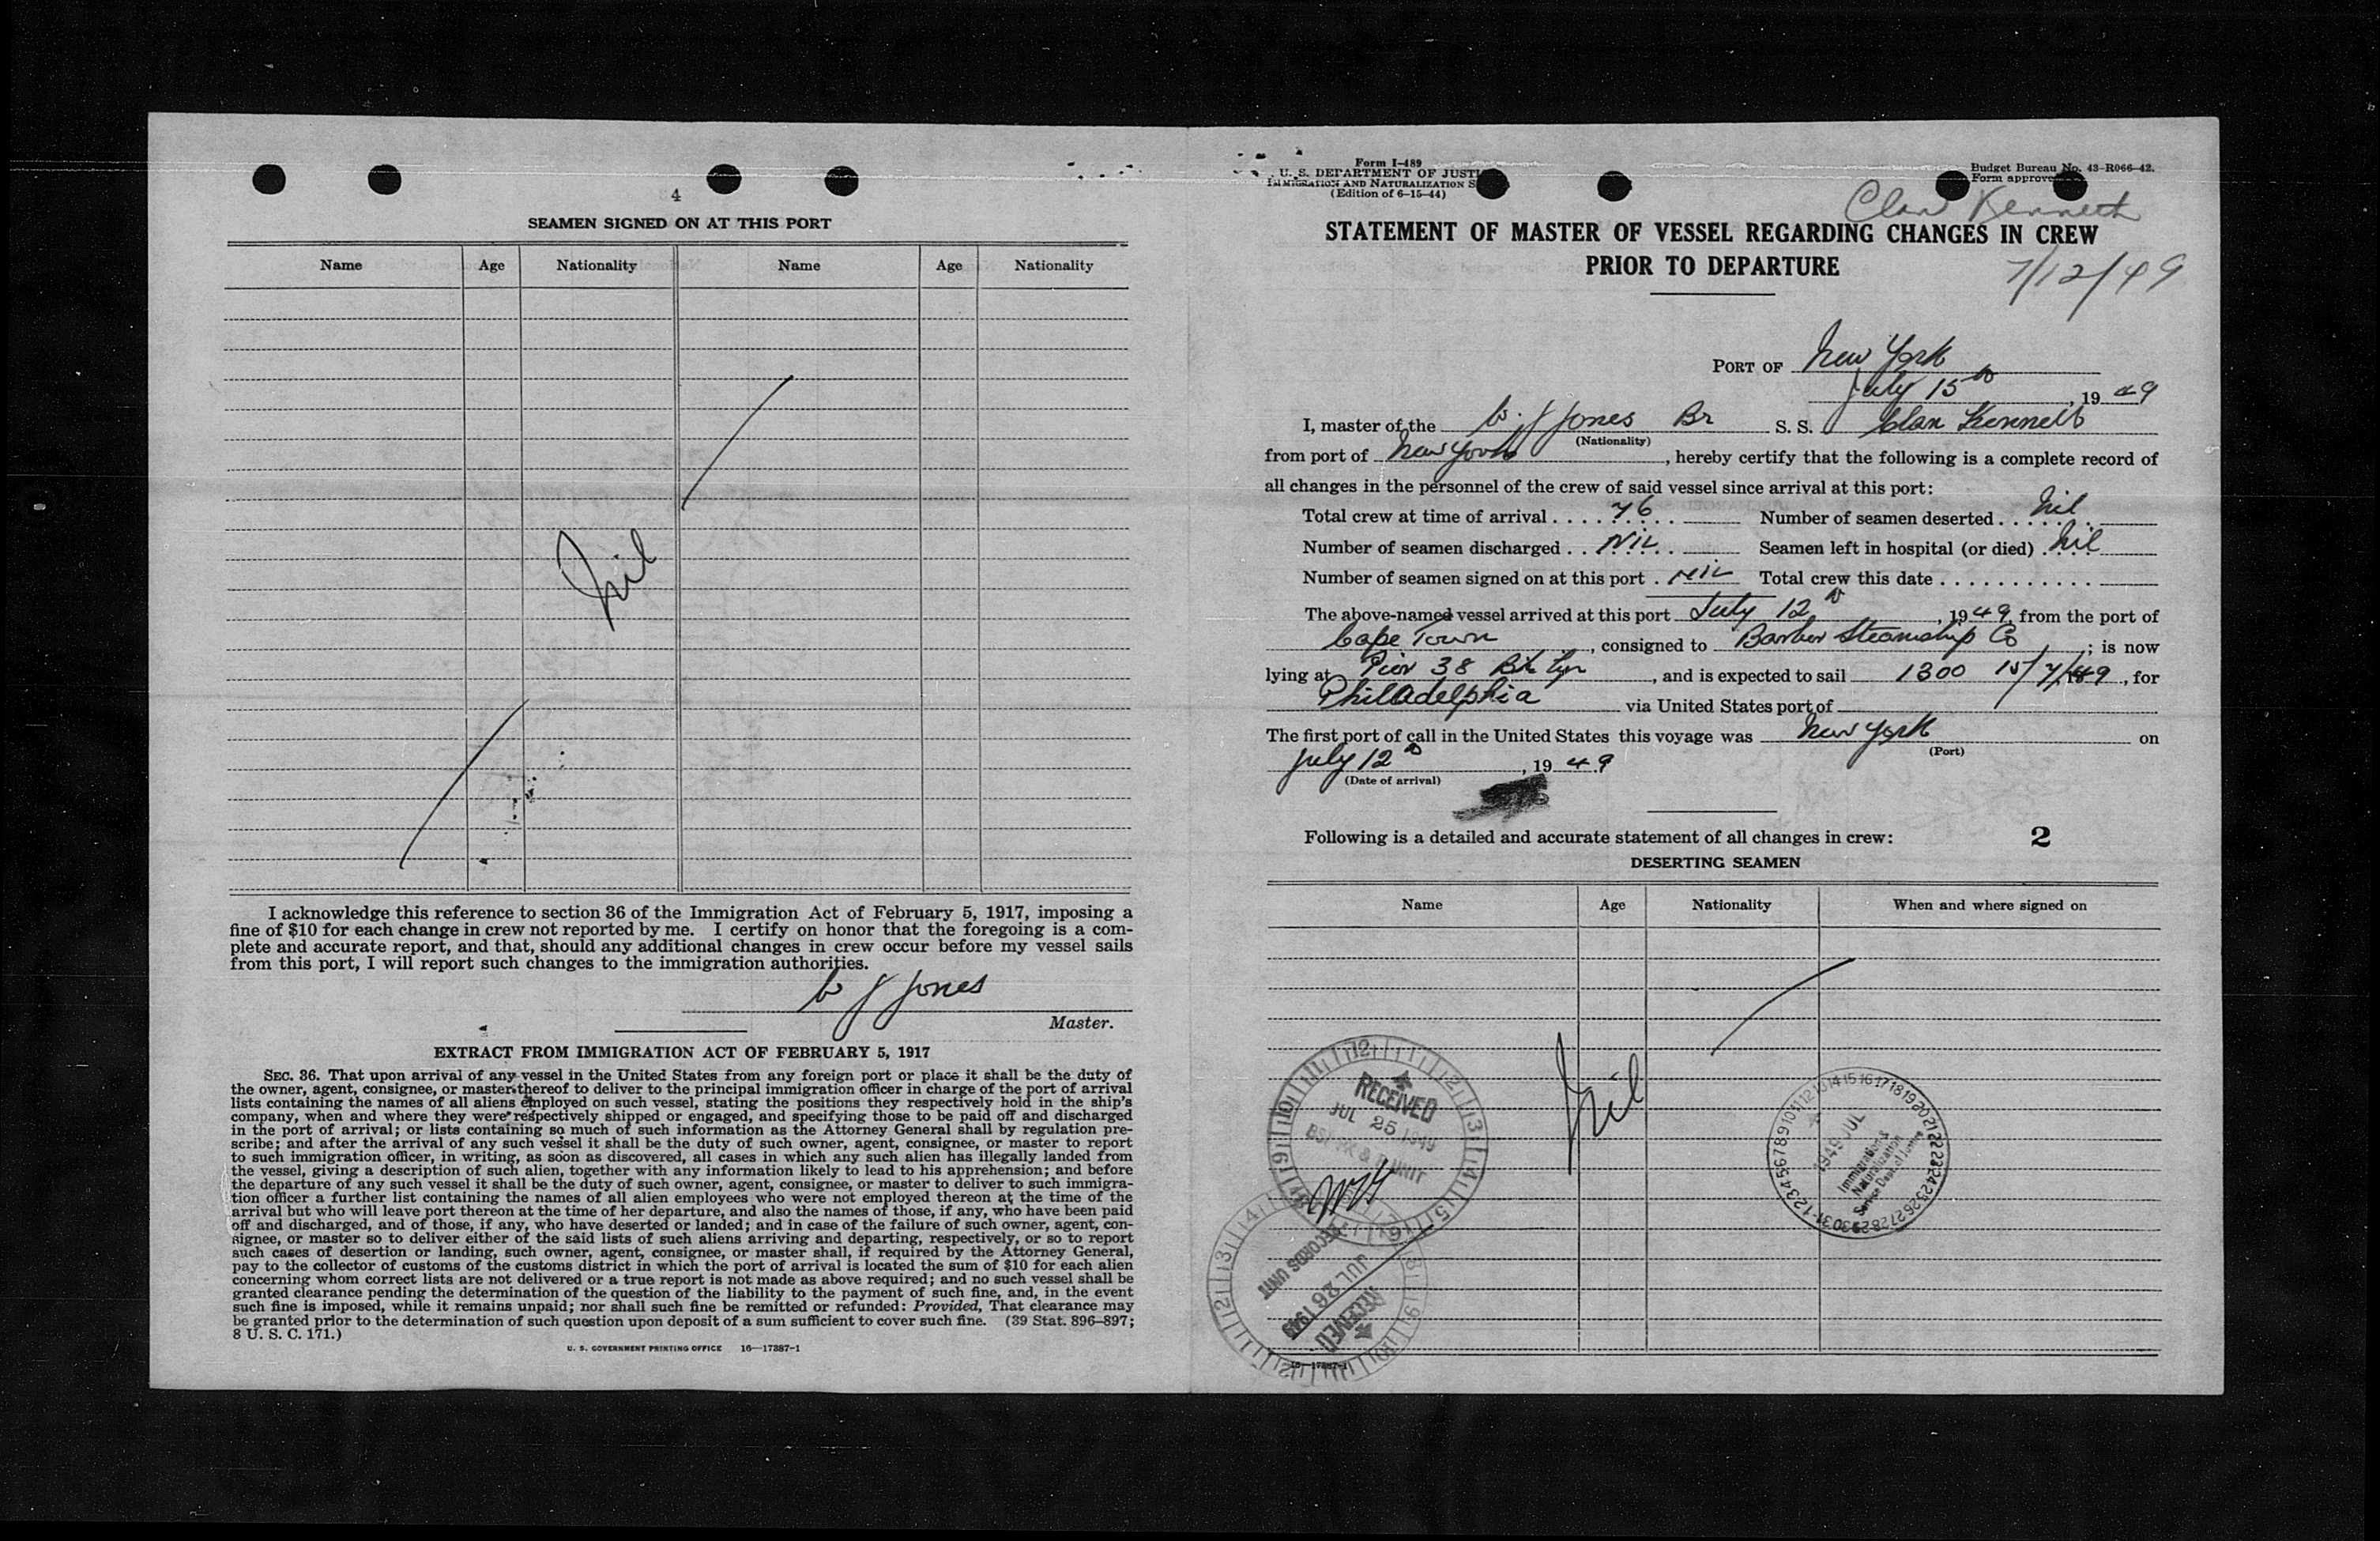 4
SEAMEN SIGNED ON AT THIS PORT
Name Age Nationality Name Age Nationality
Nil
I acknowledge this reference to section 36 of the Immigration Act of February 5, 1917, imposing a
fine of $10 for each change in crew not reported by me. I certify on honor that the foregoing is a com-
plete and accurate report, and that, should any additional changes in crew occur before my vessel sails
from this port, I will report such changes to the immigration authorities.
W J Jones
Master.
EXTRACT FROM IMMIGRATION ACT OF FEBRUARY 5, 1917
SEC. 36. That upon arrival of any vessel in the United States from any foreign port or place it shall be the duty of
the owner, agent, consignee, or master thereof to deliver to the principal immigration officer in charge of the port of arrival
lists containing the names of all aliens employed on such vessel, stating the positions they respectively hold in the ship's
company, when and where they were respectively shipped or engaged, and specifying those to be paid off and discharged
in the port of arrival; or lists containing so much of such information as the Attorney General shall by regulation pre-
scribe; and after the arrival of any such vessel it shall be the duty of such owner, agent, consignee, or master to report
to such immigration officer, in writing, as soon as discovered, all cases in which any such alien has illegally landed from
the vessel, giving a description of such alien, together with any information likely to lead to his apprehension; and before
the departure of any such vessel it shall be the duty of such owner, agent, consignee, or master to deliver to such immigra-
tion officer a further list containing the names of all alien employees who were not employed thereon at the time of the
arrival but who will leave port thereon at the time of her departure, and also the names of those, if any, who have been paid
off and discharged, and of those, if any, who have deserted or landed; and in case of the failure of such owner, agent, con-
signee, or master so to deliver either of the said lists of such aliens arriving and departing, respectively, or so to report
such cases of desertion or landing, such owner, agent, consignee, or master shall, if required by the Attorney General,
pay to the collector of customs of the customs district in which the port of arrival is located the sum of $10 for each alien
concerning whom correct lists are not delivered or a true report is not made as above required; and no such vessel shall be
granted clearance pending the determination of the question of the liability to the payment of such fine, and, in the event
such fine is imposed, while it remains unpaid; nor shall such fine be remitted or refunded: Provided, That clearance may
be granted prior to the determination of such question upon deposit of a sum sufficient to cover such fine. (39 Stat. 896-897;
8 U. S. C. 171.)
U. S. GOVERNMENT PRINTING OFFICE 16—17387-1
Form I-489
U. S. DEPARTMENT OF JUSTI
IMMIGRATION AND NATURALIZATION S
(Edition of 6-15-44)
Budget Bureau No. 43-R066-42.
Form approve
Clan Kenneth
STATEMENT OF MASTER OF VESSEL REGARDING CHANGES IN CREW
PRIOR TO DEPARTURE
7/12/49
PORT OF New York
July 15th, 1949
I, master of the W. J Jones Br S. S. Clan Kenneth
(Nationality)
from port of New York, hereby certify that the following is a complete record of
all changes in the personnel of the crew of said vessel since arrival at this port:
Total crew at time of arrival .... 76 Number of seamen deserted ..... Nil
Number of seamen discharged .. NIL Seamen left in hospital (or died) . Nil
Number of seamen signed on at this port . NIL Total crew this date ............
The above-named vessel arrived at this port July 12th, 1949, from the port of
Cape Town, consigned to Barber Steamship Co; is now
lying at Pier 38 Bklyn, and is expected to sail 1300 15/7/49, for
Philadelphia via United States port of
The first port of call in the United States this voyage was New York on
(Port)
July 12th, 1949
(Date of arrival)
Following is a detailed and accurate statement of all changes in crew: 2
DESERTING SEAMEN
Name Age Nationality When and where signed on
Nil
RECEIVED
JUL 25 1949
UNIT
RECORDS UNIT
JUL 26 1949
RECEIVED
1949 JUL
Immigration &
Naturalization
Service Dept of Justice
16—17387-1